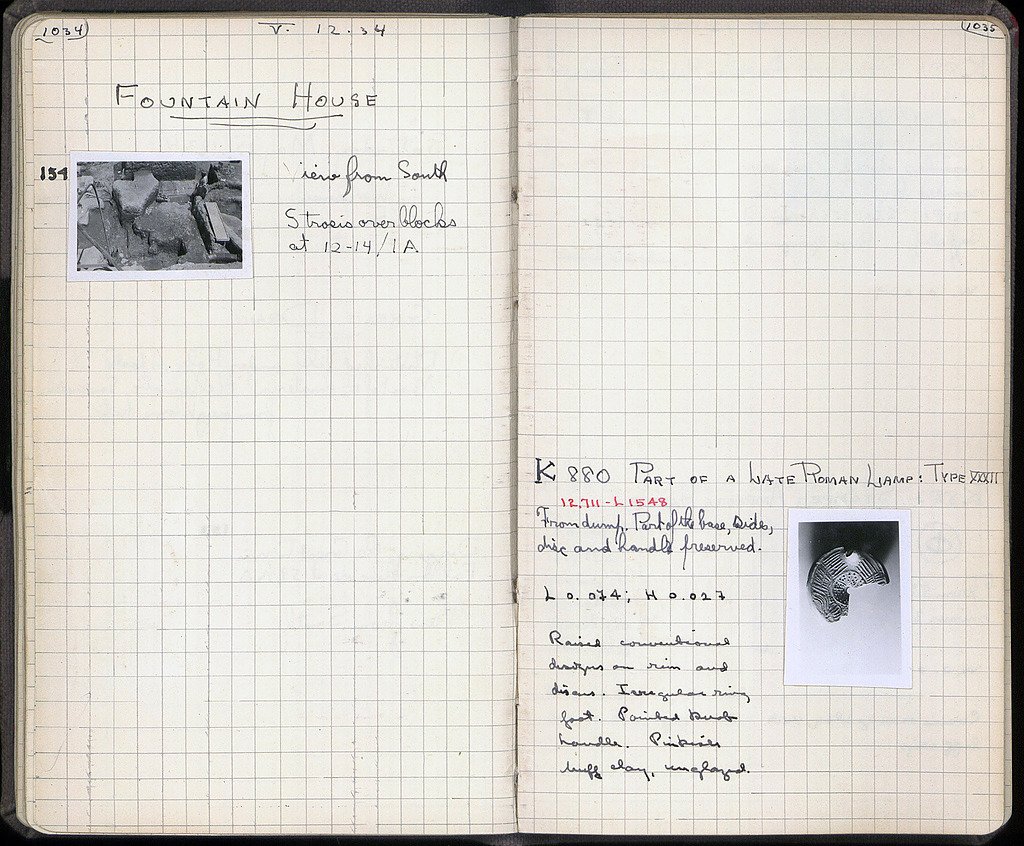 1034
V. 12.34
FOUNTAIN HOUSE
154
View from South
Strosis over blocks
at 12-14/IA
1035
K 880 PART OF A LATE ROMAN LAMP: TYPE XXXII
12,711 - L 1548
From dump. Part of the base, sides,
disc and handle preserved.
L 0.074; H 0.027
Raised conventional
designs on rim and
discus. Irregular ring
foot. Pointed knob
handle. Pinkish
buff clay, unglazed.